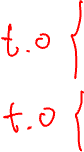 t.o {
t.o {